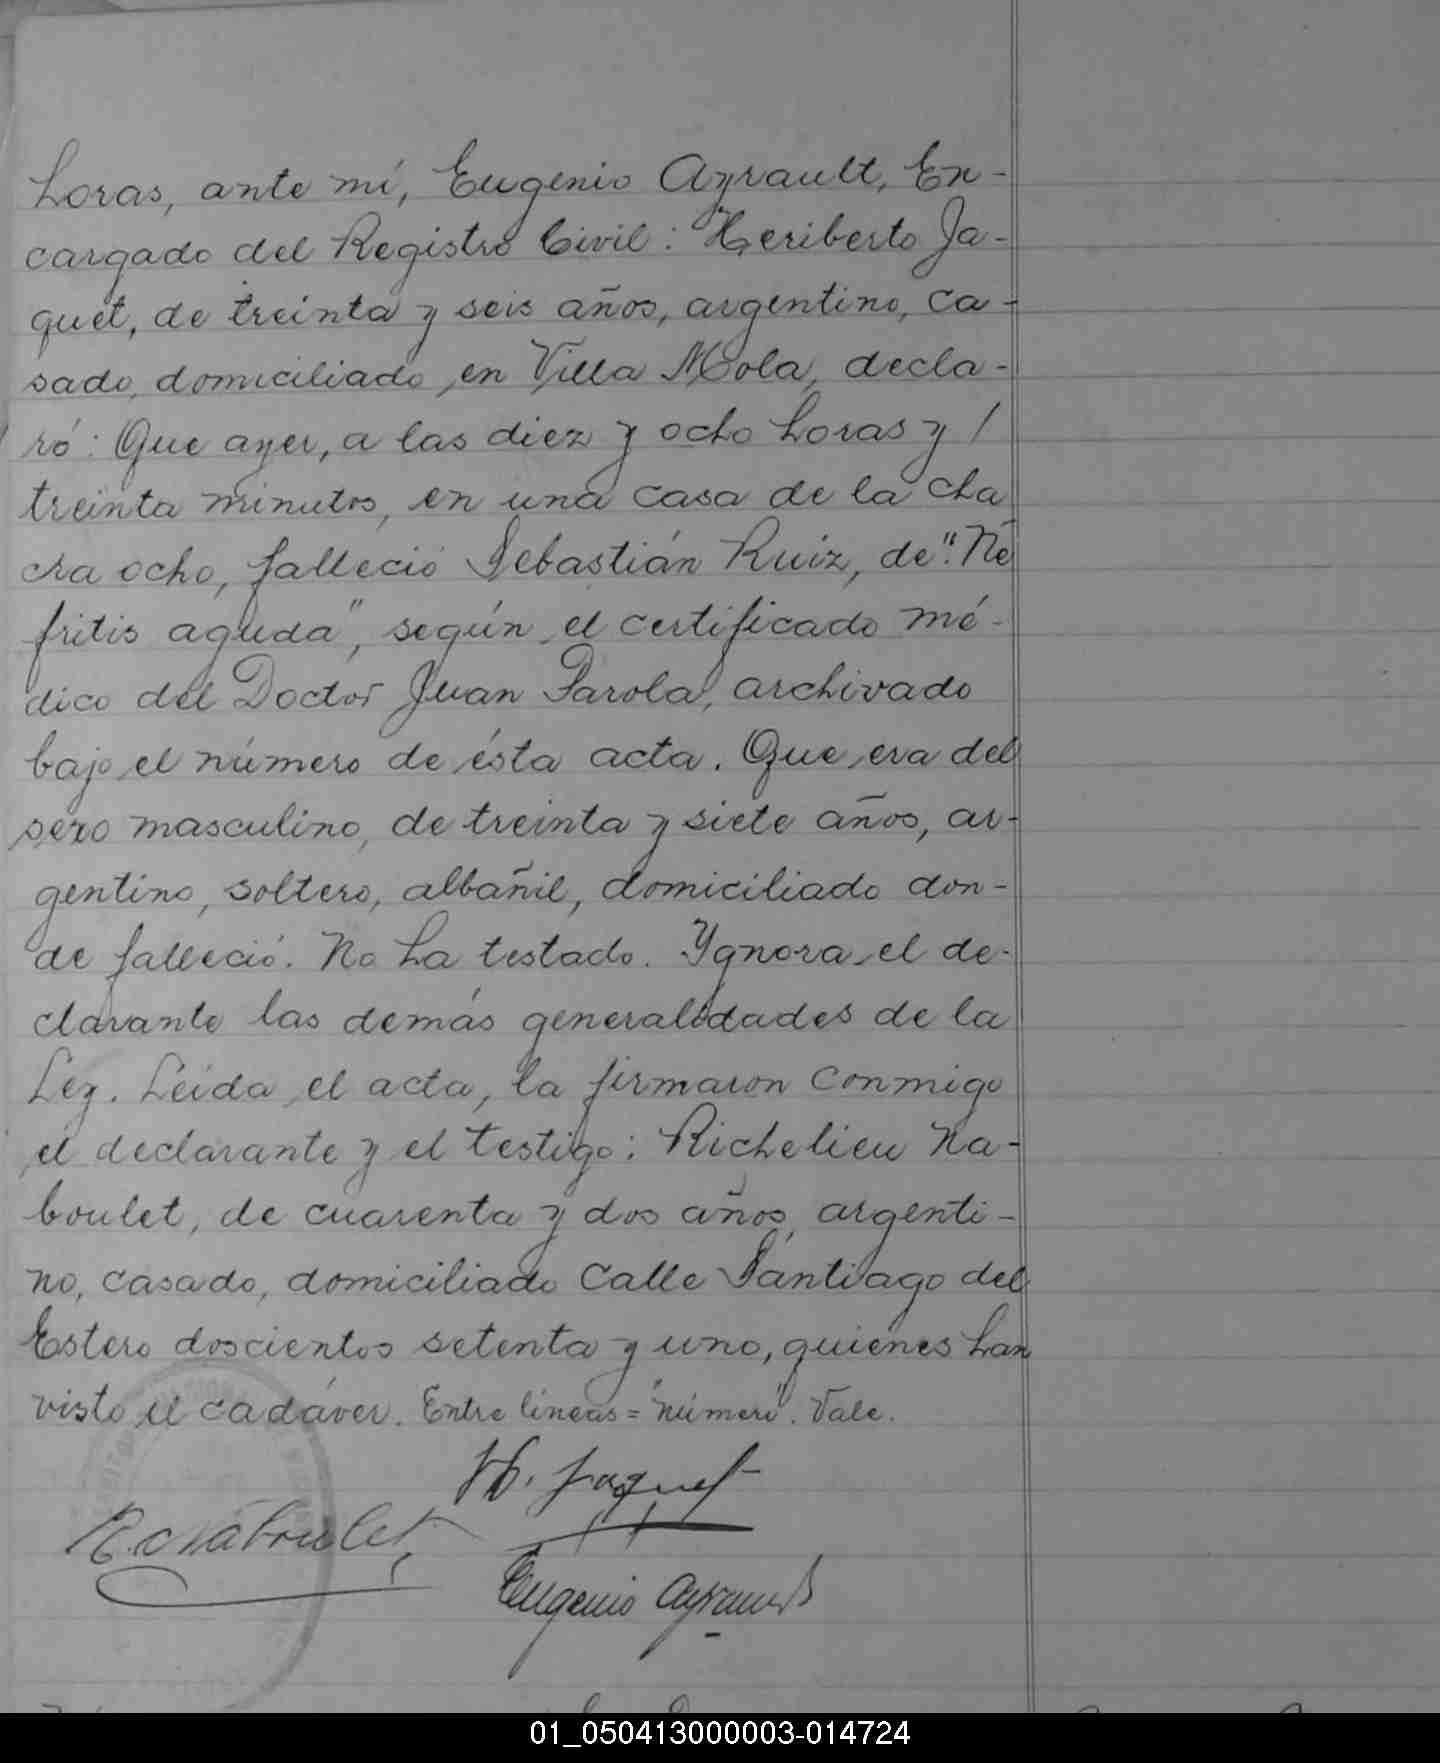 horas, ante mí, Eugenio Ayrault, En-
cargado del Registro Civil: Heriberto Ja-
quet, de treinta y seis años, argentino, ca-
sado, domiciliado en Villa Mola, decla-
ró: Que ayer, a las diez y ocho horas y /
treinta minutos, en una casa de la cha
cra ocho, falleció Sebastián Ruiz, de "Ne
fritis aguda", según el certificado mé-
dico del Doctor Juan Parola, archivado
bajo el número de ésta acta. Que era del
sexo masculino, de treinta y siete años, ar-
gentino, soltero, albañil, domiciliado don-
de falleció. No ha testado. Ygnora el de-
clarante las demás generalidades de la
Ley. Leída el acta, la firmaron conmigo
el declarante y el testigo: Richelieu Na-
boulet, de cuarenta y dos años, argenti-
no, casado, domiciliado Calle Santiago del
Estero doscientos setenta y uno, quienes han
visto el cadáver. Entre líneas = "número". Vale.
H. Jaquet
R. Naboulet
Eugenio Ayrault
01_050413000003-014724